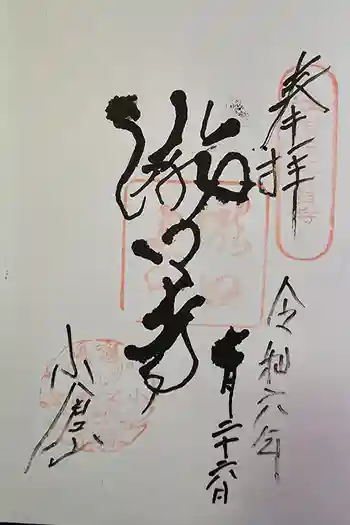 奉拝
令和六年
十月二十六日
瀧口寺
小倉山